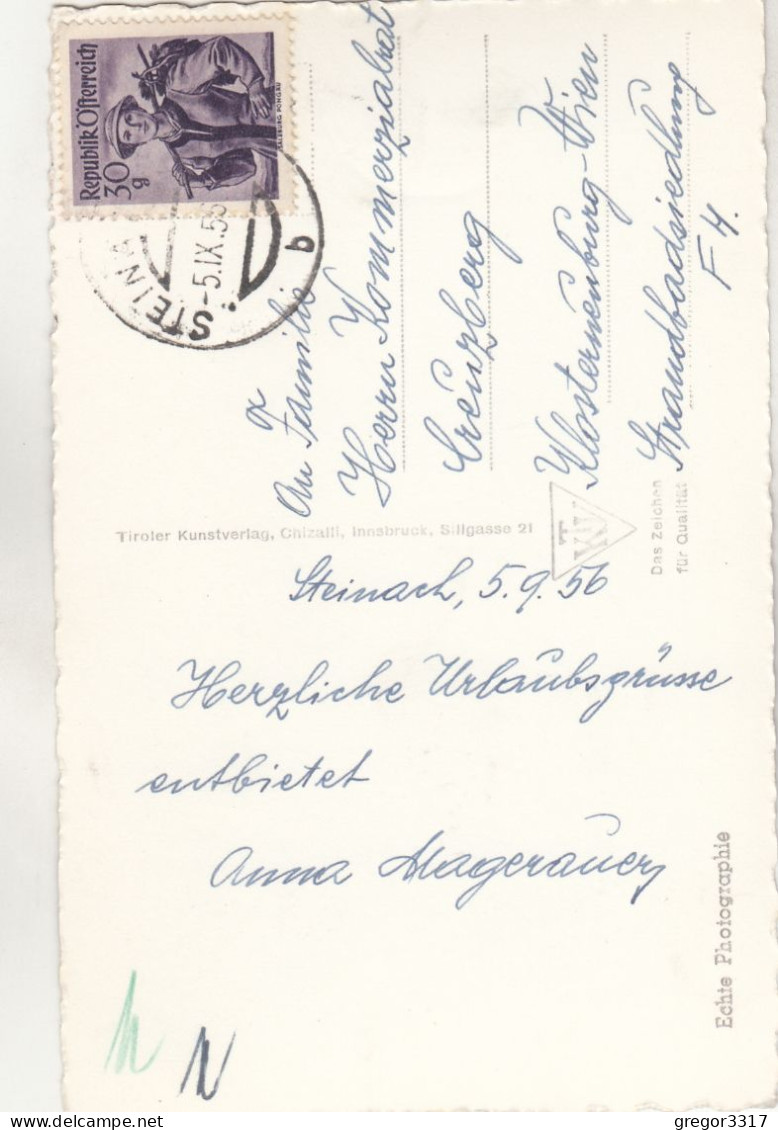 Republik Österreich
30 g
SALZBURG, PONGAU
STEINA
-5.IX.56
b
An Familie
Herrn Kommerzialrat
Creuzberg
Klosterneuburg-Wien
Strandbadsiedlung
F 4.
Tiroler Kunstverlag, Chizalli, Innsbruck, Sillgasse 21
TKV
Das Zeichen
für Qualität
Steinach, 5.9.56
Herzliche Urlaubsgrüsse
entbietet
Anna Magerauer
Echte Photographie
N
gregor3317